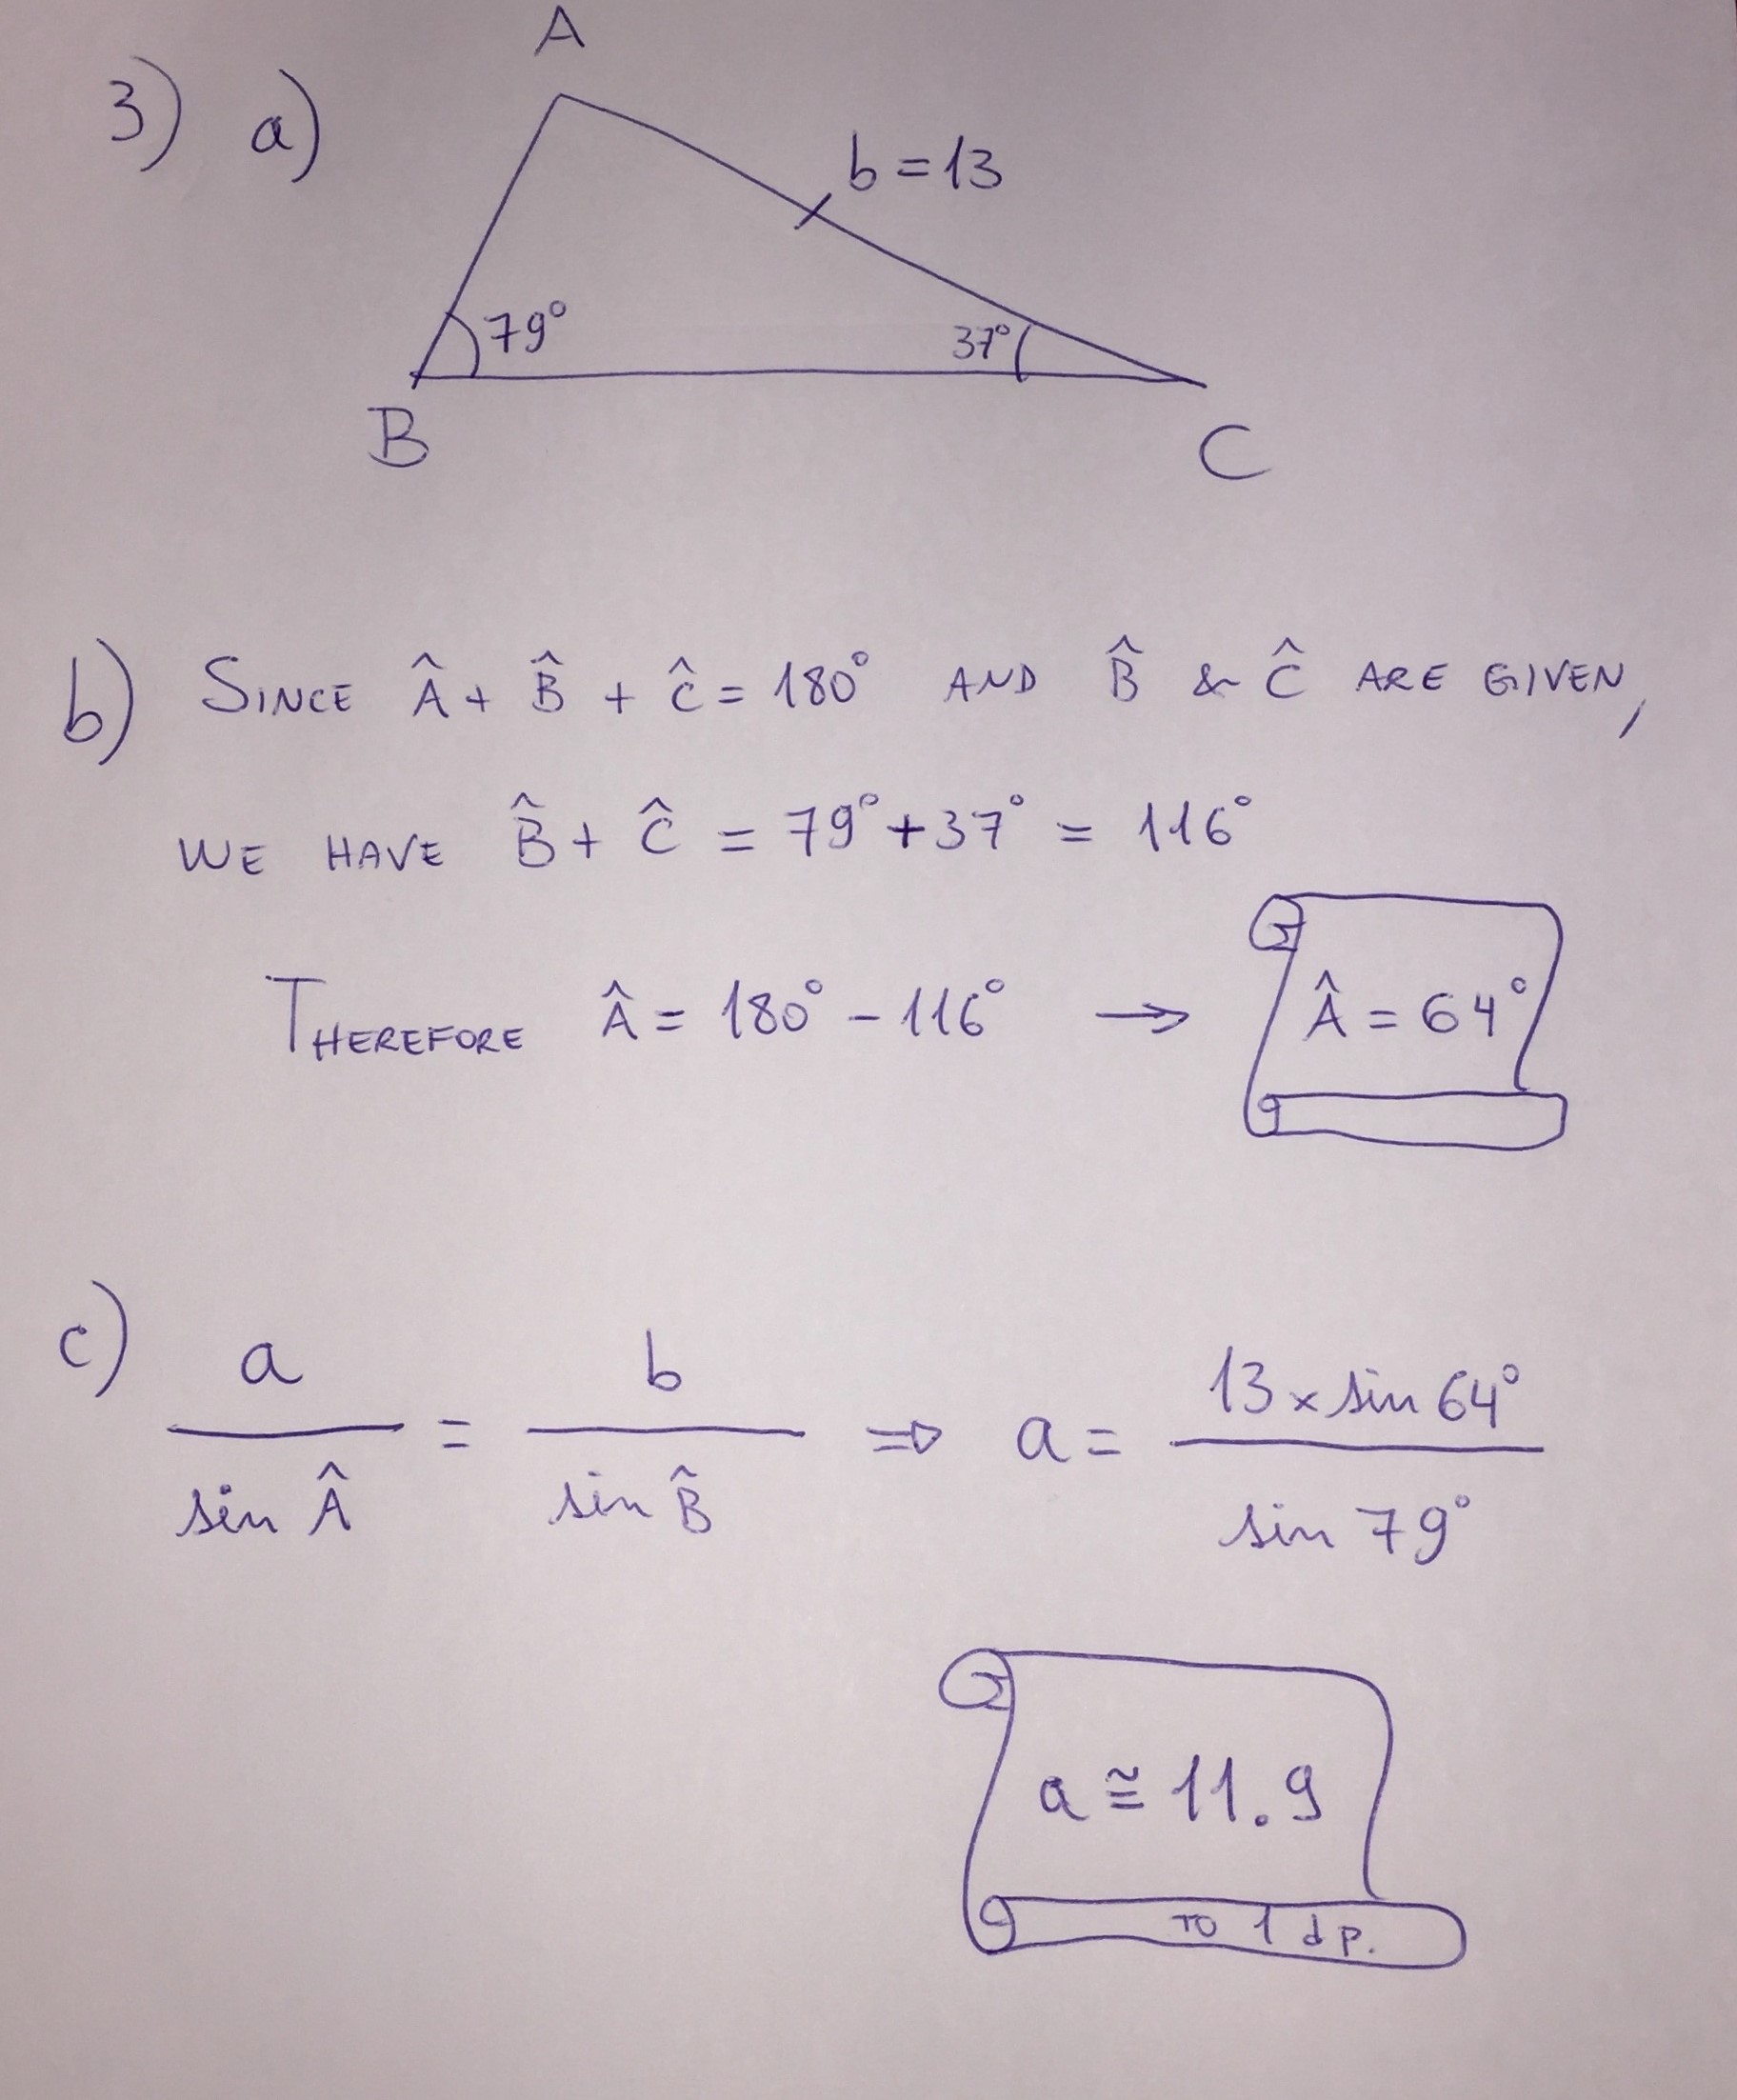 3) a)
A
b = 13
79° 37°
B C
b) SINCE Â + B̂ + Ĉ = 180° AND B̂ & Ĉ ARE GIVEN,
WE HAVE B̂ + Ĉ = 79° + 37° = 116°
THEREFORE Â = 180° - 116° → Â = 64°
c) a / sin Â = b / sin B̂ ⇒ a = 13 × sin 64° / sin 79°
a ≅ 11.9
TO 1 dp.